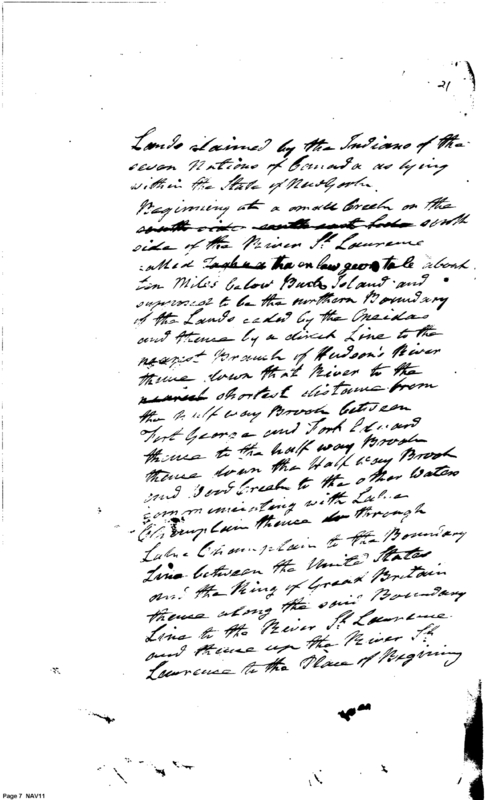 21
Lands claimed by the Indians of the
seven Nations of Canada as lying
within the State of New York.
Beginning at a small Creek on the
south side south east side south
side of the River St. Laurence
called about
ten Miles below Buck Island and
supposed to be the northern Boundary
of the Lands ceded by the Oneidas
and thence by a direct Line to the
nearest Branch of Hudson's River
thence down that River to the
nearest shortest distance from
the half way Brook between
Fort George and Fort Edward
thence to the half way Brook
thence down the Half Way Brook
and Wood Creek to the other Waters
communicating with Lake
Champlain thence through
Lake Champlain to the Boundary
Line between the United States
and the King of Great Britain
thence along the said Boundary
Line to the River St. Laurence
and thence up the River St.
Laurence to the Place of Begining
Page 7 NAV11